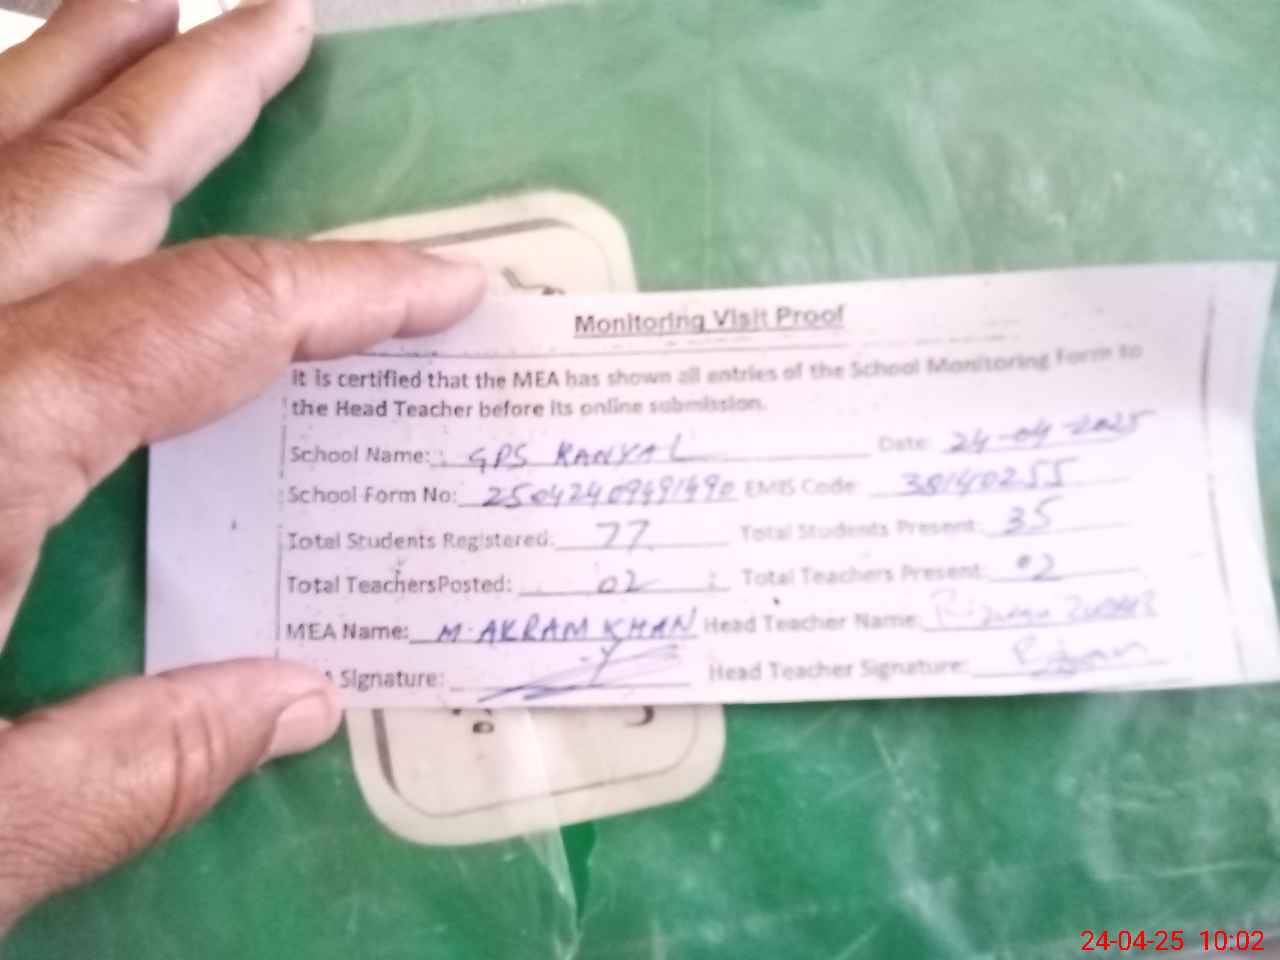 Monitoring Visit Proof
It is certified that the MEA has shown all entries of the School Monitoring Form to
the Head Teacher before its online submission.
School Name: GPS RANYAL Date: 24-04-2025
School Form No: 25042409491490 EMIS Code: 38140255
Total Students Registered: 77 Total Students Present: 35
Total TeachersPosted: 02 Total Teachers Present: 02
MEA Name: M. AKRAM KHAN Head Teacher Name:
Signature: Head Teacher Signature:
24-04-25 10:02